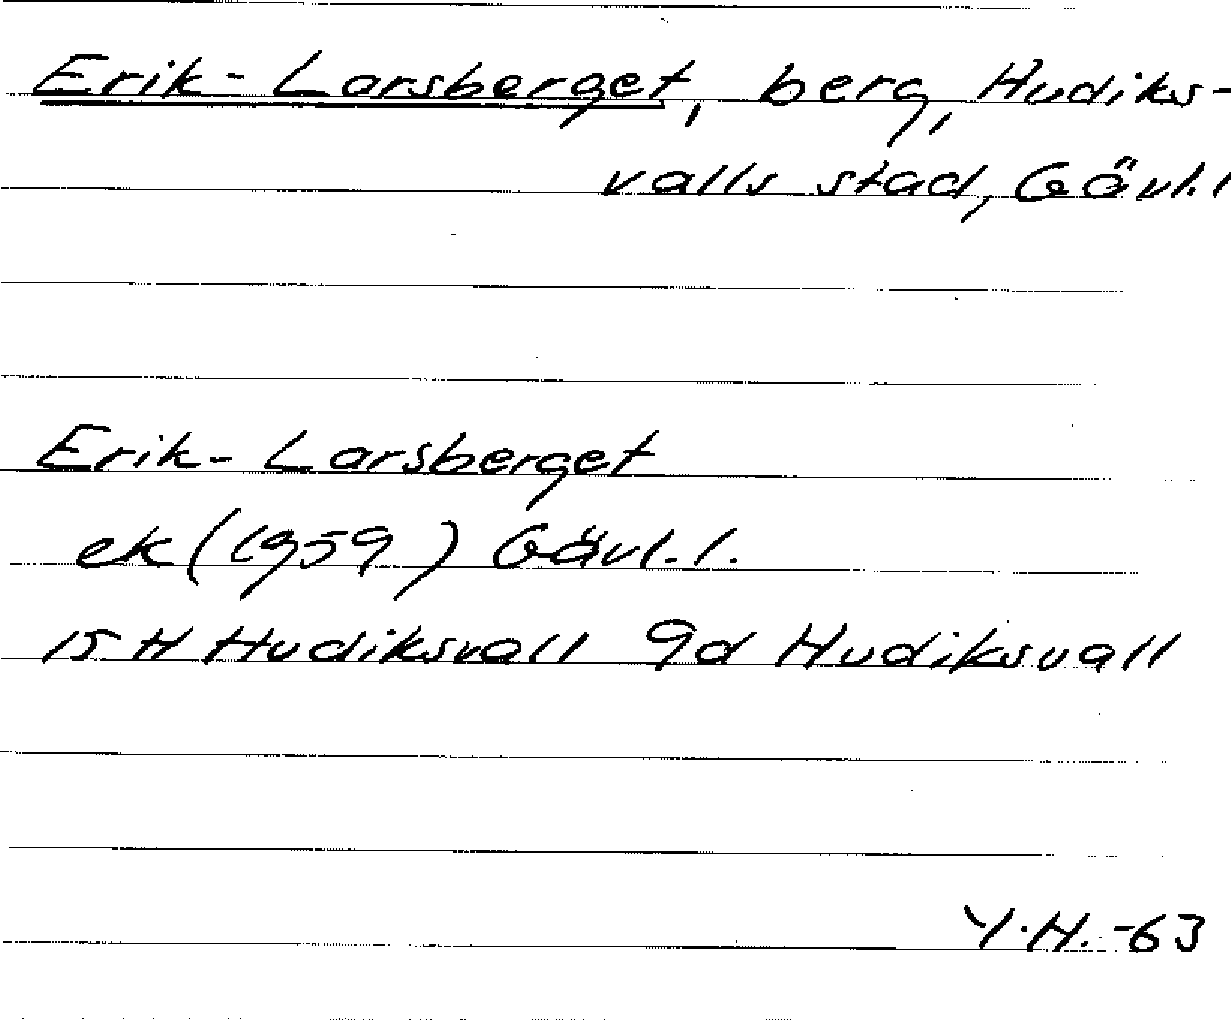 Erik-Larsberget, berg, Hudiks-
valls stad, Gävl. l
Erik-Larsberget
ek (1959) Gävl. l.
15 H Hudiksvall 9d Hudiksvall
Y.H. -63